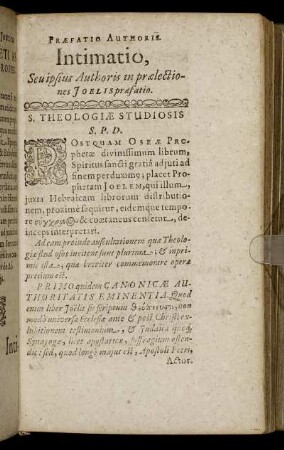 PRÆFATIO AUTHORIS.
Intimatio,
Seu ipsius Authoris in prælectio-
nes JOELIS præfatio.
S. THEOLOGIÆ STUDIOSIS
S. P. D.
POSTQUAM OSEÆ Pro-
phetæ divinissimum librum,
Spiritus sancti gratiâ adjuti ad
finem perduximus, placet Pro-
phetam JOELEM, qui illum,
juxta Hebraicam librorum distributio-
nem, proximè sequitur, eidemque tempo-
re & coætaneus censetur, de-
inceps interpretari.
Ad eam proinde auscultationem qua Theolo-
giæ studiosos invitent sunt plurima, & inpri-
mis ista, quæ breviter commemorare operæ
pretium est.
PRIMO quidem CANONICÆ AU-
THORITATIS EMINENTIA. Quod
enim liber Joëlis sit scriptum non
modò universa Ecclesia ante & post Christi ex-
hibitionem testimonium, & Judaica quoq;
Synagoga, licet apostatica, suffragium osten-
dit: sed, quod longè majus est, Apostoli Petri,
Actor.